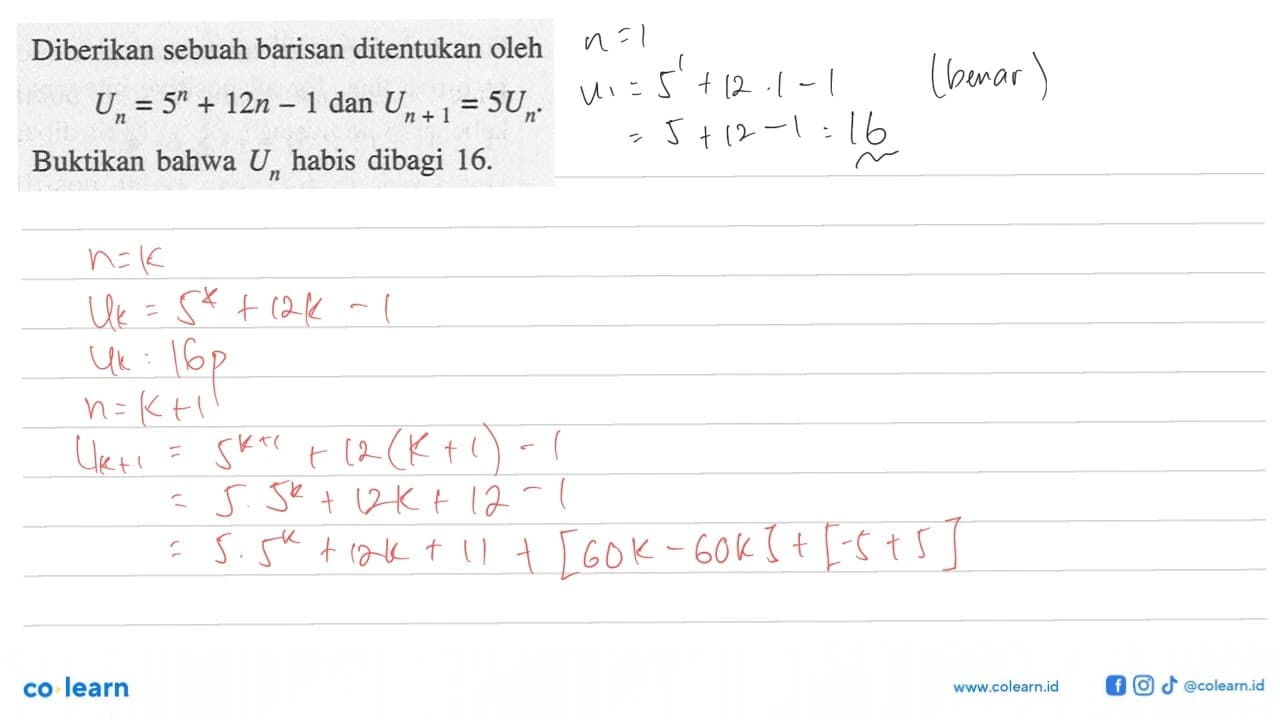 Diberikan sebuah barisan ditentukan oleh
Uₙ = 5ⁿ + 12n – 1 dan Uₙ₊₁ = 5Uₙ.
Buktikan bahwa Uₙ habis dibagi 16.
n=1
U₁ = 5¹ + 12 . 1 – 1 (benar)
= 5 + 12 – 1 = 16
n=k
Uₖ = 5ᵏ + 12k – 1
Uₖ = 16p
n=k+1
Uₖ₊₁ = 5ᵏ⁺¹ + 12(k + 1) – 1
= 5. 5ᵏ + 12k + 12 – 1
= 5. 5ᵏ + 12k + 11 + [60k – 60k] + [-5 + 5]
co learn
www.colearn.id @colearn.id